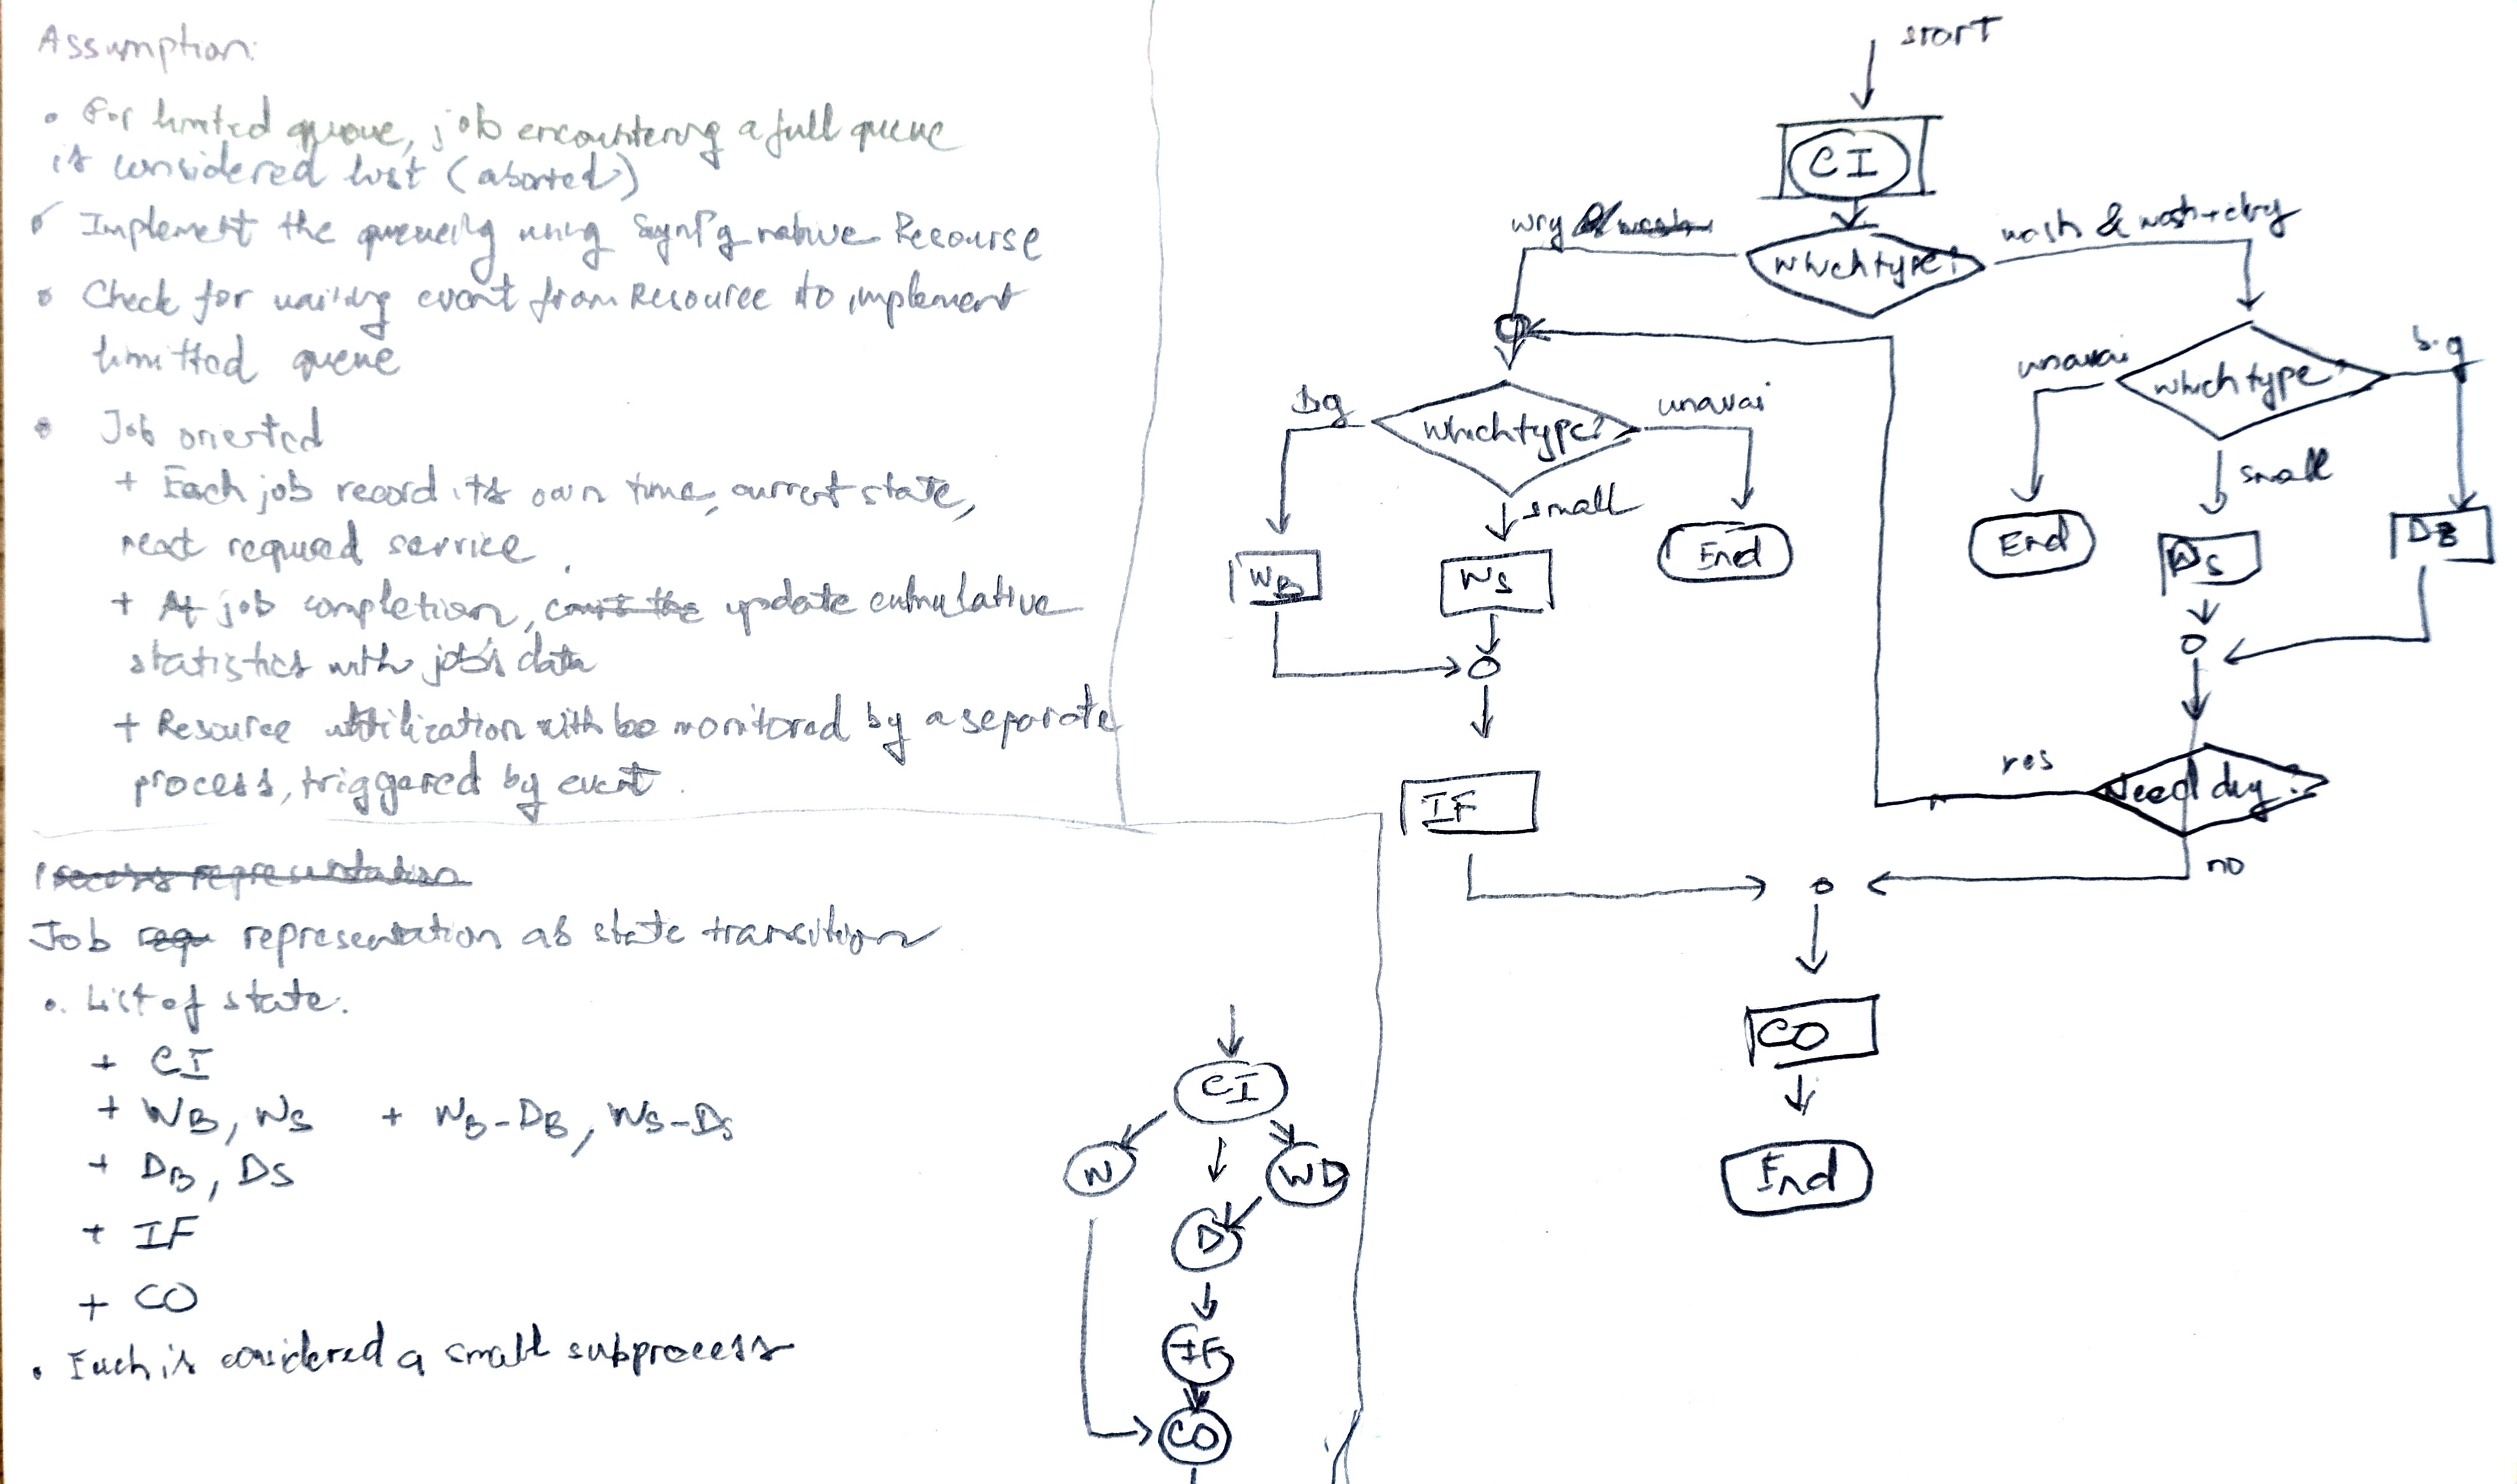 Assumption:
• For limited queue, job encountering a full queue
is considered lost (aborted)
• Implement the queueing using Recourse
• Check for waiting event from Resource to implement
limitted queue
• Job oriented
+ Each job record its own time, current state,
next required service
+ At job completion, update cumulative
statistics with job's data
+ Resource utilization with be monitored by a separate
process, triggered by event.
Process representation
Job representation as state transition
• List of state.
+ CI
+ WB, WS + WB-DB, WS-DS
+ DB, DS
+ IF
+ CO
• Each is considered a small subprocess
CI
W
WD
D
IF
CO
start
CI
wash & wash+dry
which type?
which type?
unavai
big
small
End
DS
DB
which type?
unavai
small
WB
WS
End
Need dry?
no
IF
CO
End